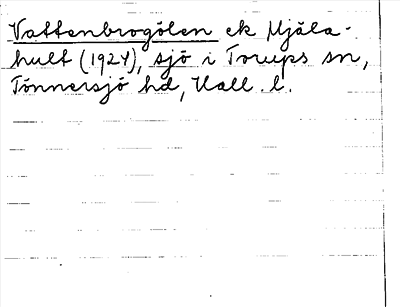 Vattenbrogölen ek Mjäla-
hult (1924), sjö i Torups sn,
Tönnersjö hd, Hall. l.